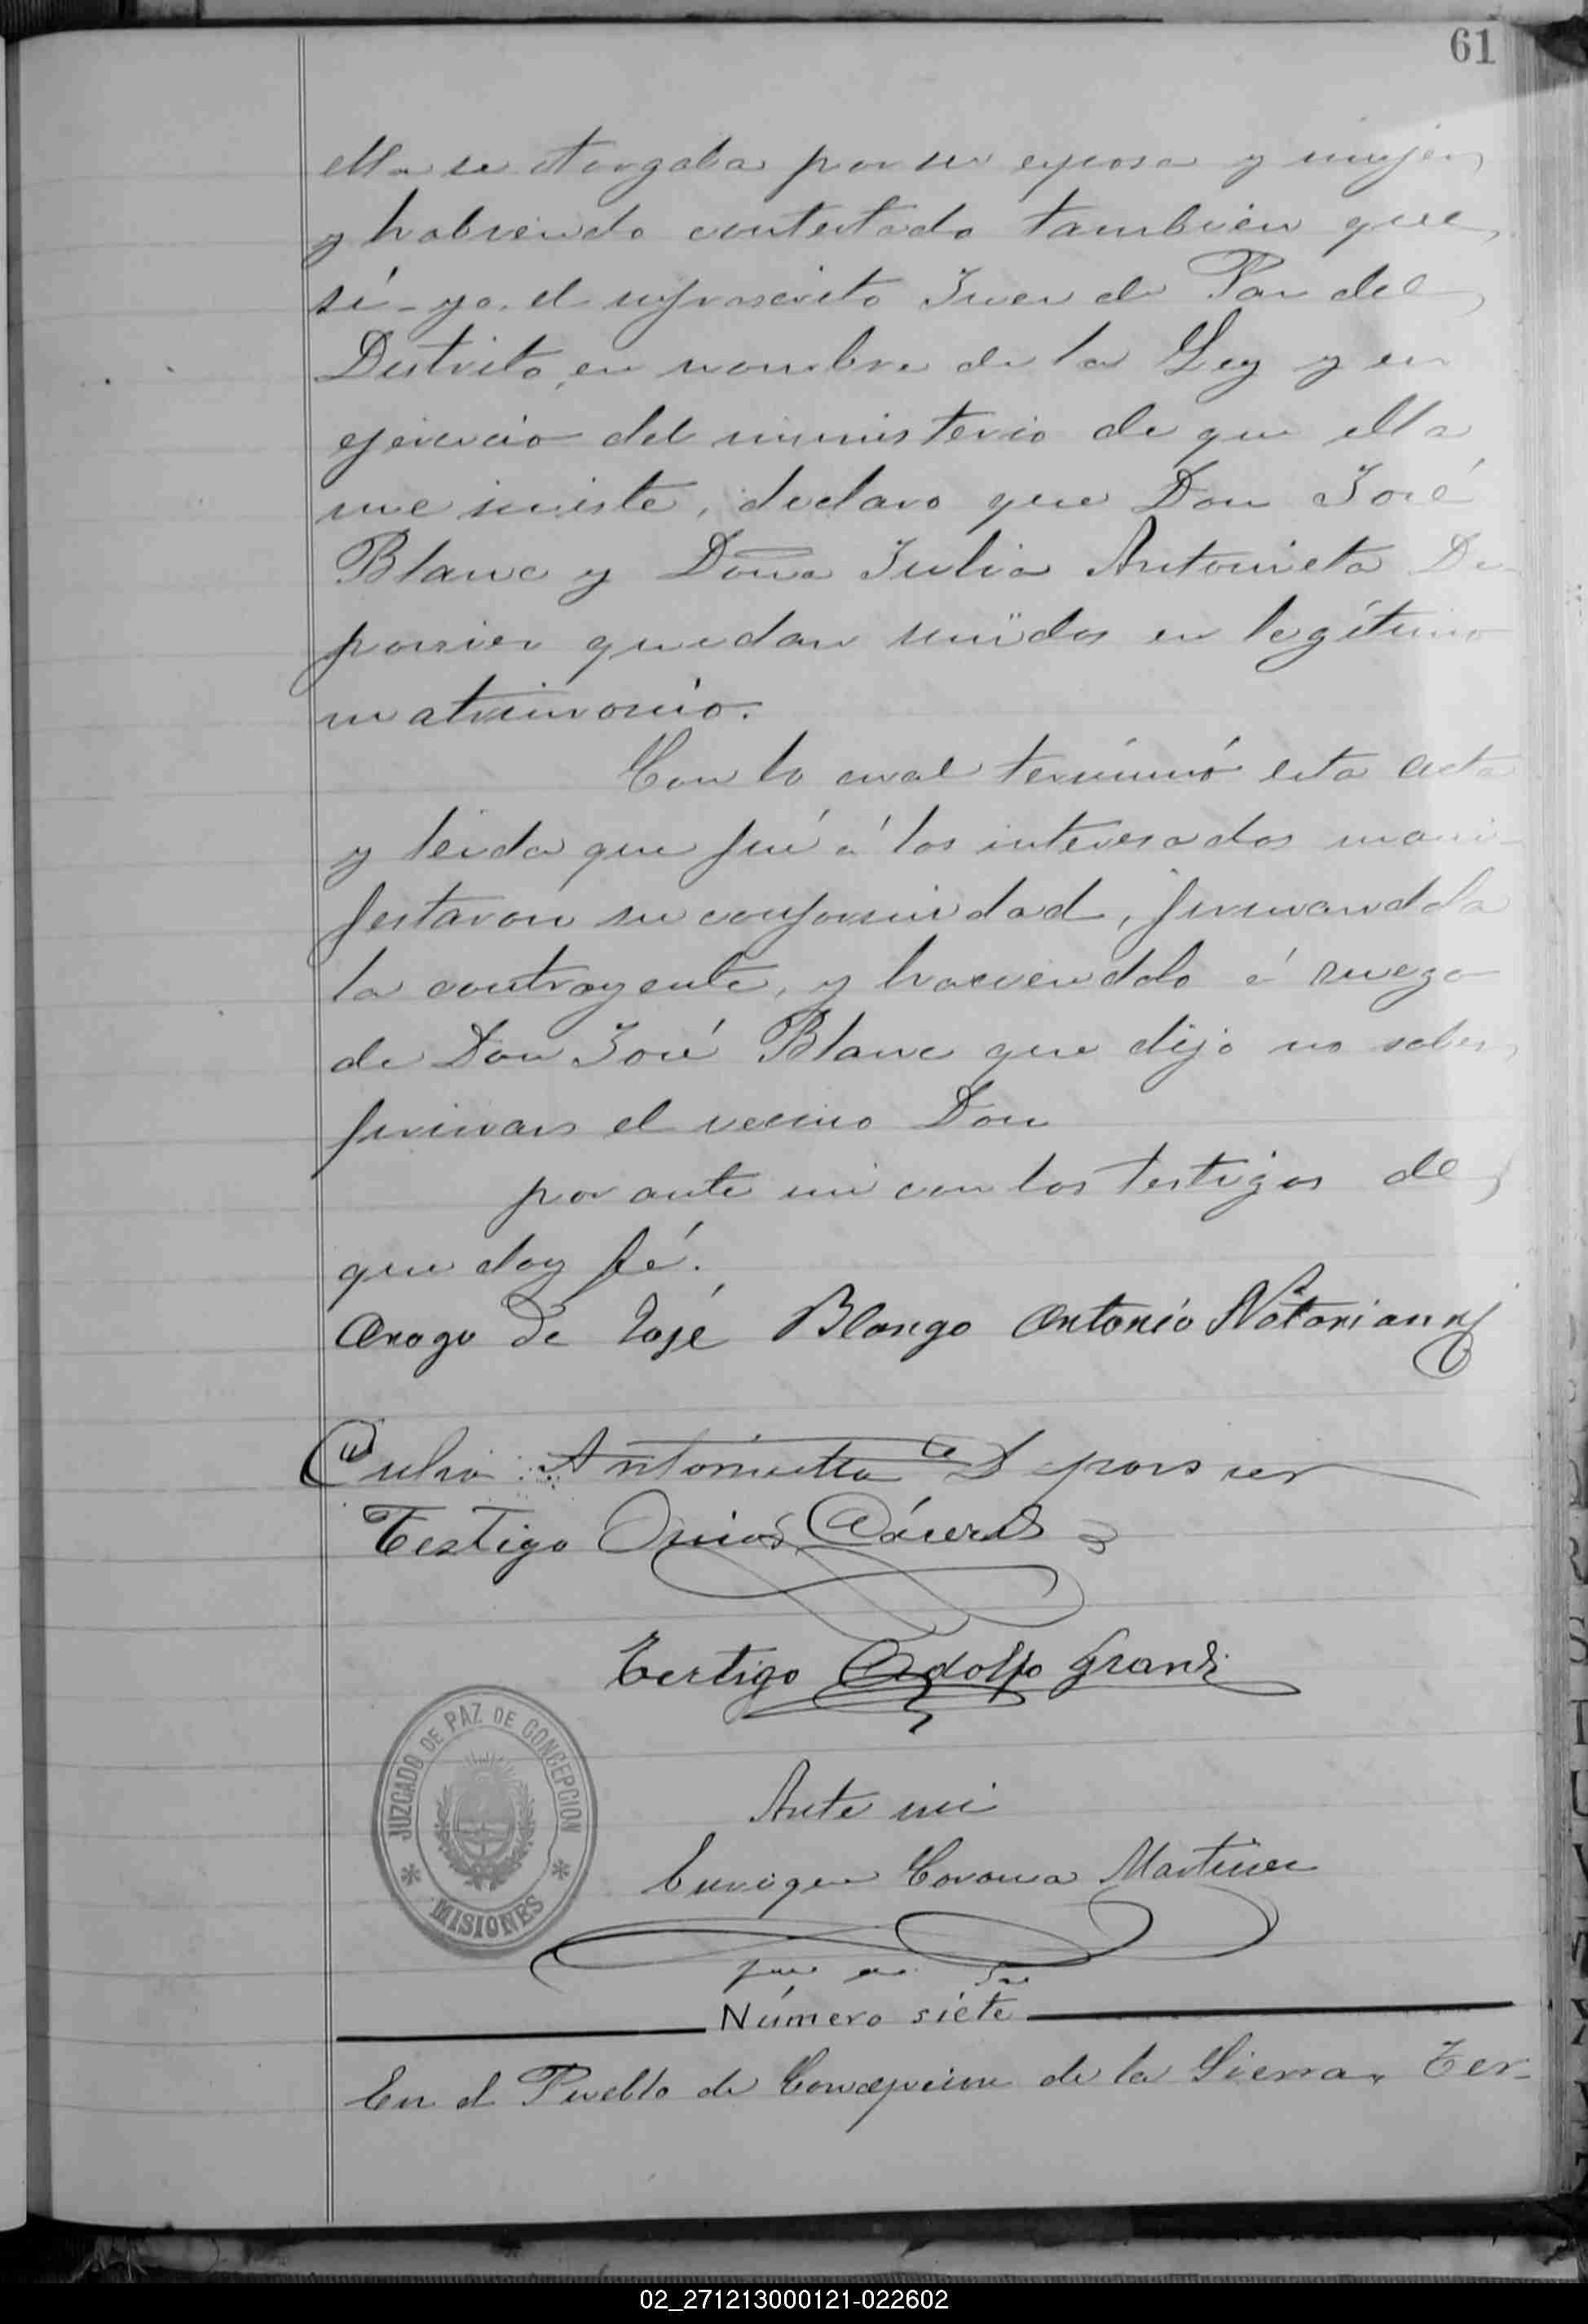 61
ella se otorgaba por su esposa y mujer,
y habiendo contestado tambien que
sí - yo, el infrascrito Juez de Paz del
Distrito, en nombre de la Ley y en
ejercicio del ministerio de que ella
me inviste, declaro que Don José
Blanc y Doña Julia Antonieta De
porsier quedan unidos en legítimo
matrimonio.
Con lo cual terminó esta acta
y leida que fué á los interesados mani-
festaron su conformidad, firmandola
la contrayente, y haciendolo á ruego
de Don José Blanc que dijo no saber
firmar el vecino Don
por ante mi con los testigos de
que doy fé.
Arogo de José Blango Antonio Notarianni
Julia Antonietta Deporsier
Testigo Cáceres
Testigo Adolfo Grandi
JUZGADO DE PAZ DE CONCEPCION
* MISIONES *
Ante mi
Enrique Corona Martinez
Número siete
En el Pueblo de Concepcion de la Sierra, Ter-
02_271213000121-022602